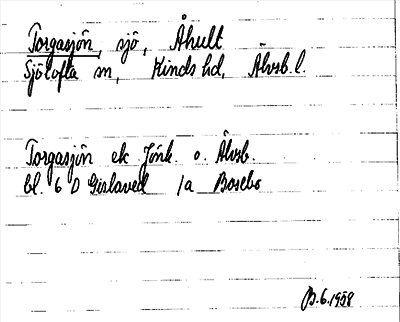 Torgasjön, sjö, Åhult
Sjötofta sn, Kinds hd, Älvsb. l.
Torgasjön ek Jönk. o. Älvsb.
bl. 6 D Gislaved 1a Bosebo
6.1958